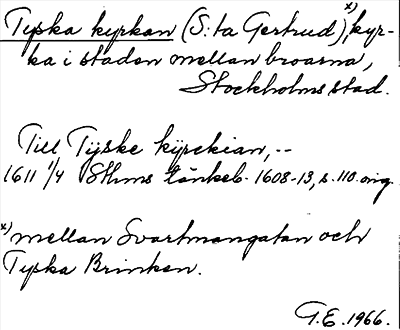 Tyska kyrkan (S:ta Gertrud)x), kyr-
ka i staden mellan broarna,
Stockholms stad.
Till Tÿske kÿrckian, --
1611 1/4 Sthms tänkeb. 1608-13, s. 110. orig.
x) mellan Svartmangatan och
Tyska Brinken.
G.E. 1966.